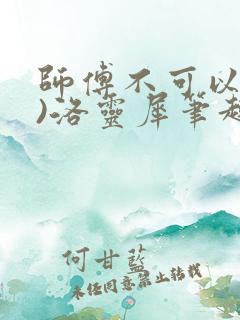 師傅不可以
)洛靈犀筆趣
何甘藍
未經同意禁止轉載